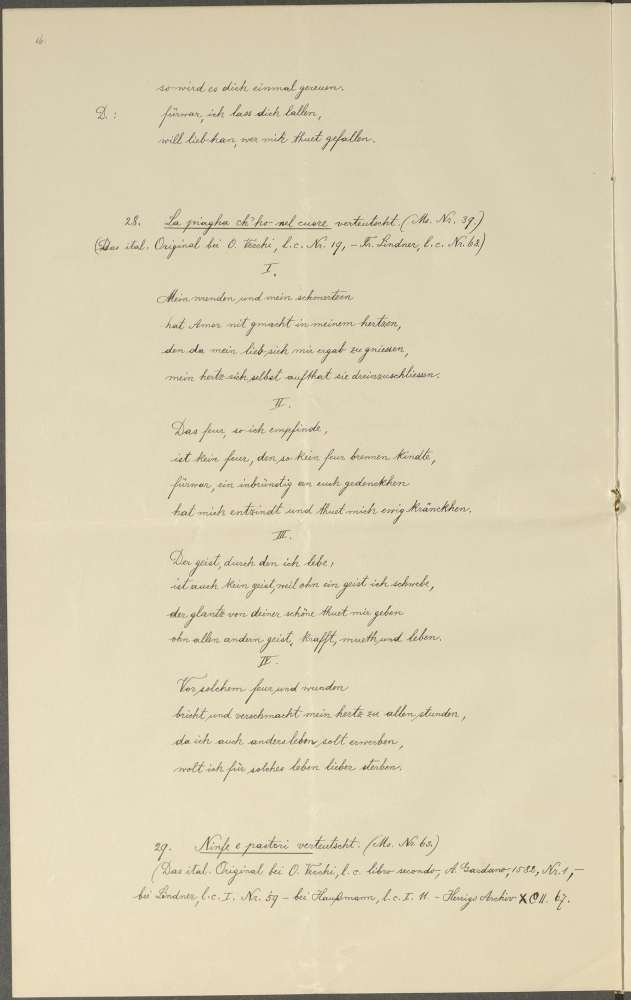 16.
so wird es dich einmal gereuen.
D.: fürwar, ich lass dich lallen,
will lieb han, wer mir thuet gefallen.
28. La piagha ch'ho nel cuore verteutscht. (Ms. Nr. 39.)
(Das ital. Original bei O. Vecchi, l.c. Nr. 19, – Fr. Lindner, l.c. Nr. 68)
I.
Mein wunden, und mein schmertzen
hat Amor nit gmacht in meinem hertzen,
den da mein lieb sich mir ergab zu gniessen,
mein hertz sich selbst aufthat sie dreinzuschliessen.
II.
Das feur, so ich empfinde,
ist kein feur, den so kein feur brennen kindte,
fürwar, ein inbrünstig an euch gedenckhen
hat mich entzindt und thuet mich ewig kränckhen.
III.
Der geist, durch den ich lebe,
ist auch kein geist, weil ohn ein geist ich schwebe,
der glantz von deiner schöne thuet mir geben
ohn allen andern geist, krafft, mueth und leben.
IV.
Vor solchem feur und wunden
bricht und verschmacht mein hertz zu allen stunden,
da ich auch anders leben solt erwerben,
wolt ich für solches leben lieber sterben.
29. Ninfe e pastori verteutscht. (Ms. Nr. 63.)
(Das ital. Original bei O. Vecchi, l.c. libro secondo, A. Gardano, 1582, Nr. 1, –
bei Lindner, l.c. I. Nr. 59 – bei Haußmann, l.c. I. 11. – Herrigs Archiv XCII. 67.